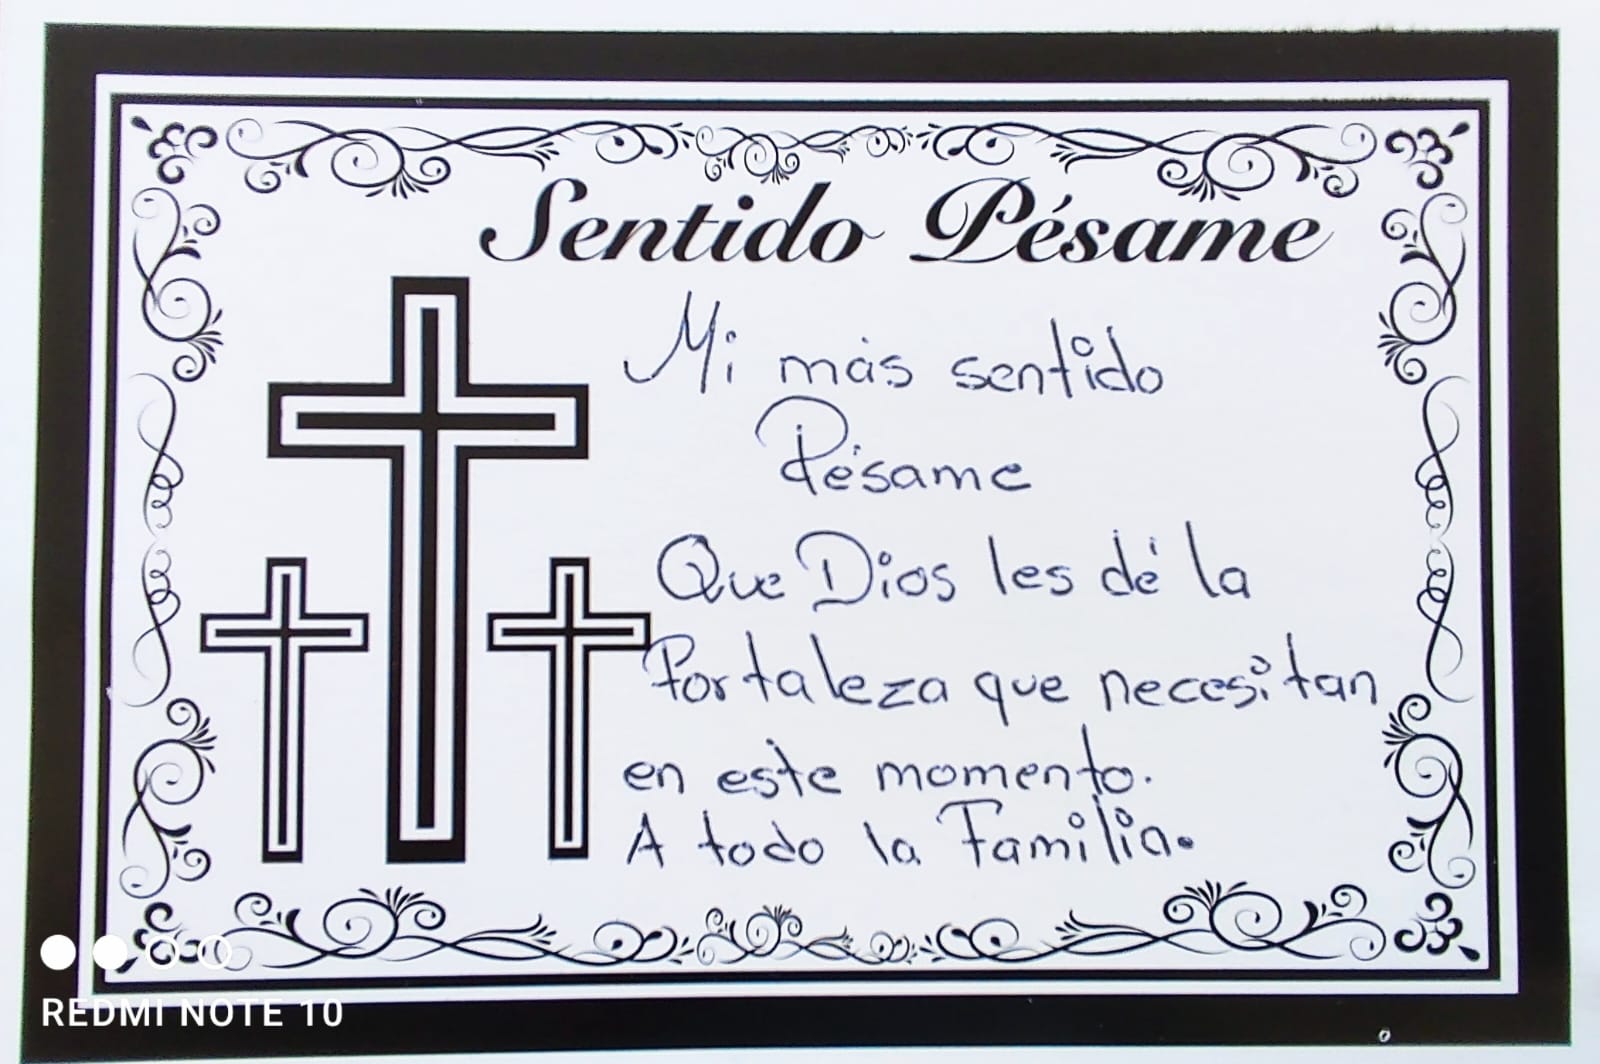 Sentido Pésame
Mi más sentido
Pésame
Que Dios les dé la
Fortaleza que necesitan
en este momento.
A todo la Familia.
REDMI NOTE 10